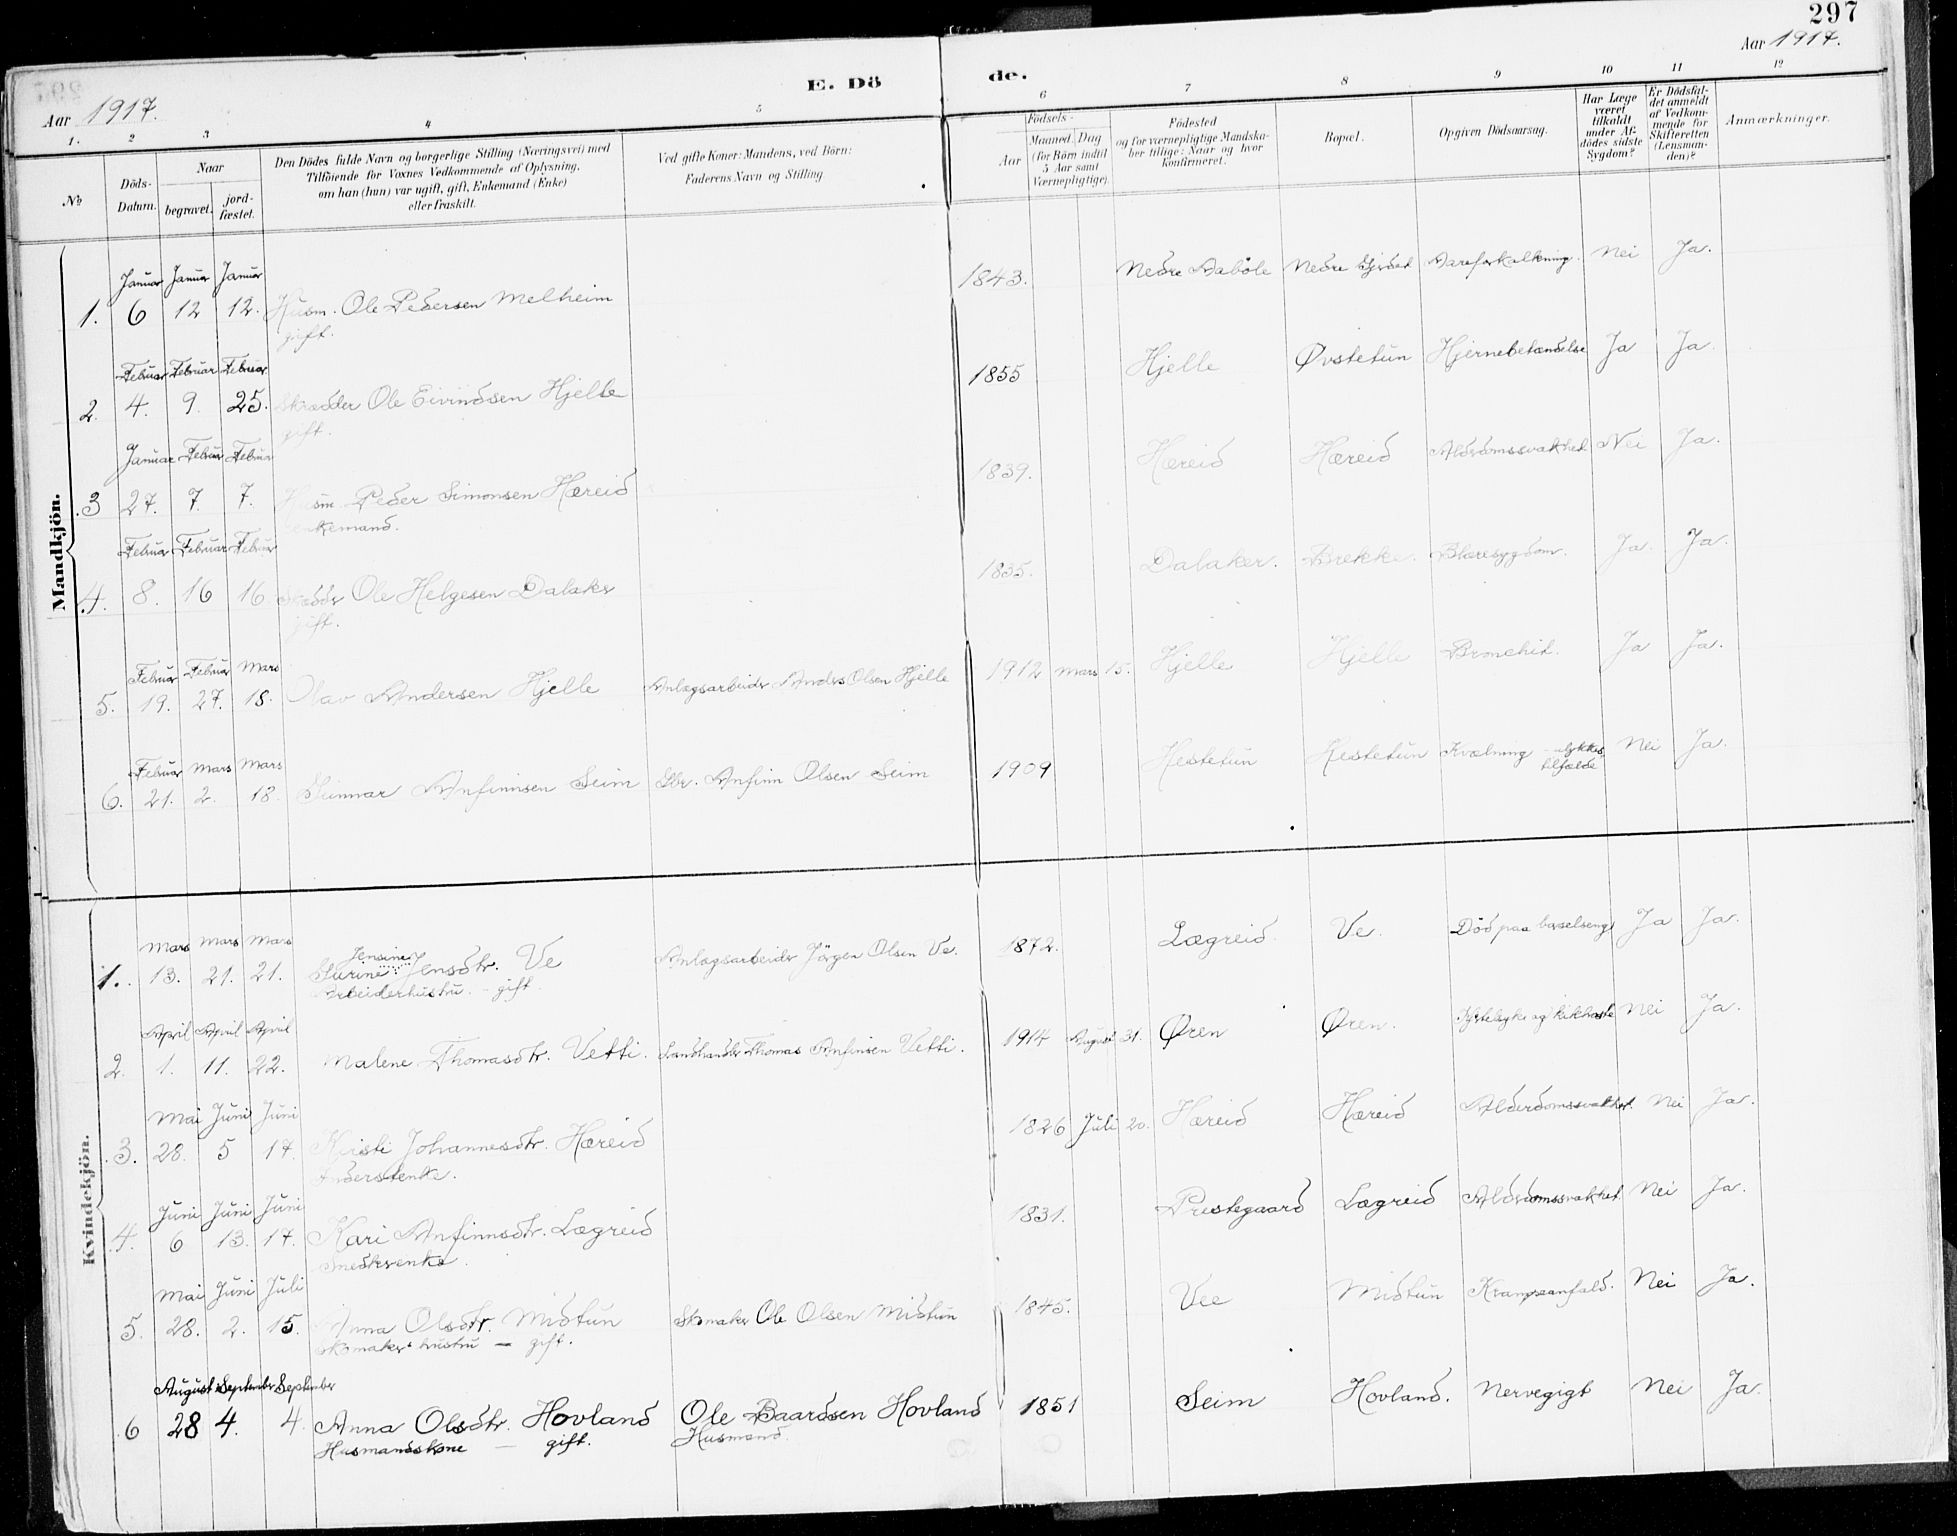 297
Aar 1917.
E. Dö de.
Aar 1917.
1. 2 3 4 5 6 7 8 9 10 11 12
№
Döds-Datum.
Naar
begravet.
jord-fæstet.
Den Dödes fulde Navn og borgerlige Stilling (Næringsvei) med
Tilföiende for Voxnes Vedkommende af Oplysning,
om han (hun) var ugift, gift, Enkemand (Enke)
eller fraskilt.
Ved gifte Koner: Mandens, ved Börn:
Faderens Navn og Stilling.
Födsels-
Aar
Maaned.
Dag
(for Börn indtil
5 Aar samt
Værnepligtige).
Födested
og for værnepligtige Mandska-
ber tillige: Naar og hvor
Konfirmeret.
Bopæl.
Opgiven Dödsaarsag.
Har Læge
været
tilkaldt
under Af-
dödes sidste
Sygdom?
Er Dödsfal-
det anmeldt
af Vedkom-
mende for
Skifteretten
(Lensman-
den)?
Anmærkninger.
Mandkjön.
Januar Januar Januar
1. 6 12 12. Husm. Ole Pedersen Melheim 1843. Nedre Aaböle Nedre Aareforkalkning. Nei Ja.
gift.
Februar Februar Februar
2. 4. 9. 25. Skrædder Ole Eivindsen Hjelle 1855 Hjelle Øvstetun Hjernebetændelse Ja Ja.
gift.
Januar Februar Februar
3 27. 7. 7. Husm. Peder Simonsen Hæreid 1839. Hæreid Hæreid Alderdomssvakhet Nei Ja.
enkemand.
Februar Februar Februar
4. 8. 16 16. Ole Helgesen Dalaker 1835. Dalaker. Brekke. Blæresygdom. Ja. Ja.
gift.
Februar Februar Mars
5. 19. 27. 18. Olav Andersen Hjelle Anlægsarbeider Anders Olsen Hjelle 1912 Mars 15. Hjelle Hjelle Bronchit. Ja Ja.
Februar Mars Mars
6. 21. 2. 18. Anfinnsen Seim Gbr. Anfinn Olsen Seim 1909 Hestetun Hestetun Kvælning – ulykkes- Nei Ja.
tilfælde
Kvindekjön.
Mars Mars Mars
Jensine
1. 13. 21. 21. Jensdtr. Ve Anlægsarbeider Jörgen Olsen Ve. 1872. Lægreid. Ve. Död paa barselseng Ja Ja.
Arbeiderhustru. – gift.
April April April
2. 1. 11. 22. Malene Thomasdtr. Vetti. Landhandler Thomas Anfinsen Vetti. 1914 August 31. Øren Øren. og kikhoste Nei Ja.
Mai Juni Juni
3. 28. 5 17. Kristi Johannesdtr. Hæreid 1826 Juli 20. Hæreid Hæreid Alderdomssvakhet. Nei Ja.
Juni Juni Juni
4. 6 13. 17. Kari Anfinnsdtr. Lægreid 1831. Prestegaard Lægreid Alderdomssvakhet Nei Ja.
Snedkerenke.
Mai Juni Juli
5. 28. 2. 15. Anna Olsdtr. Midtun Skomaker Ole Olsen Midtun 1845. Vee Midtun Krampeanfald. Nei Ja.
Skomakerhustru – gift.
August September September
6 28 4. 4. Anna Olsdtr. Hovland Ole Baardsen Hovland 1851 Seim Hovland. Nervegigt Nei Ja.
Husmandskone – gift. Husmand.